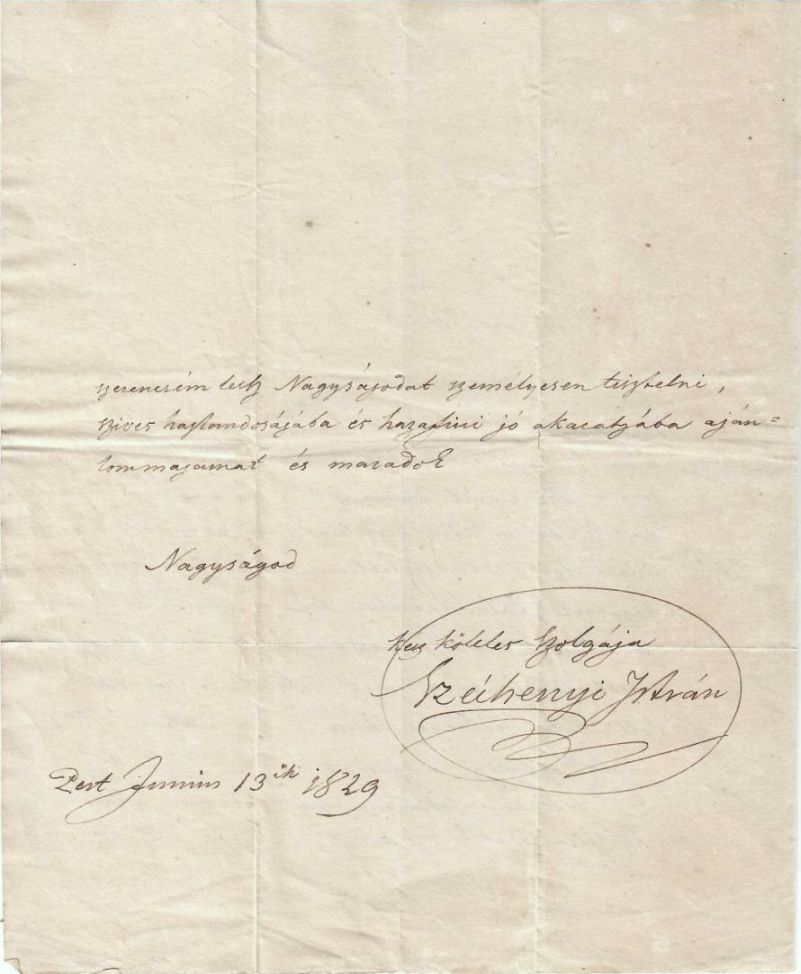 szerencsém lesz Nagyságodat személyesen tisztelni,
szives hajlandóságába és hazafiui jó akaratjába aján=
lom magamat és maradok
Nagyságod
kész köteles szolgája
Széchenyi István
Pest Junius 13ik 1829